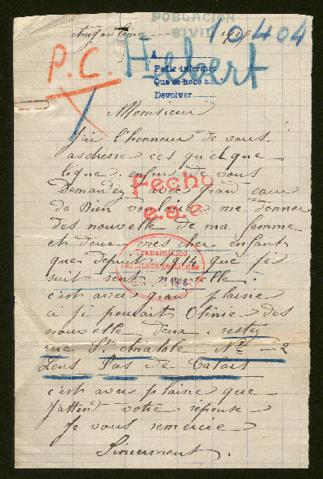 POBLACION
CIVIL
10404
P.C. Hebert
Pedir informes
Que se hace
Devolver
Monsieur
j'ai l'honneur de vous
adresse ces quelque
ligne enfin de vous
Demandez votre gran cœur
de Bien vouloir me donner
des nouvelle de ma femme
et deux mes cher enfant
que depuis 1914 que je
suit sent nouvelle.
c'est avec gran plaisir
a je pouvait Otenir des
nouvelle deux. restez
rue St Anatole No 2
Lens Pas de Calais
c'est avec plaisir que
j'attend votre réponse
Je vous remercie
Sincerment.
Fecho